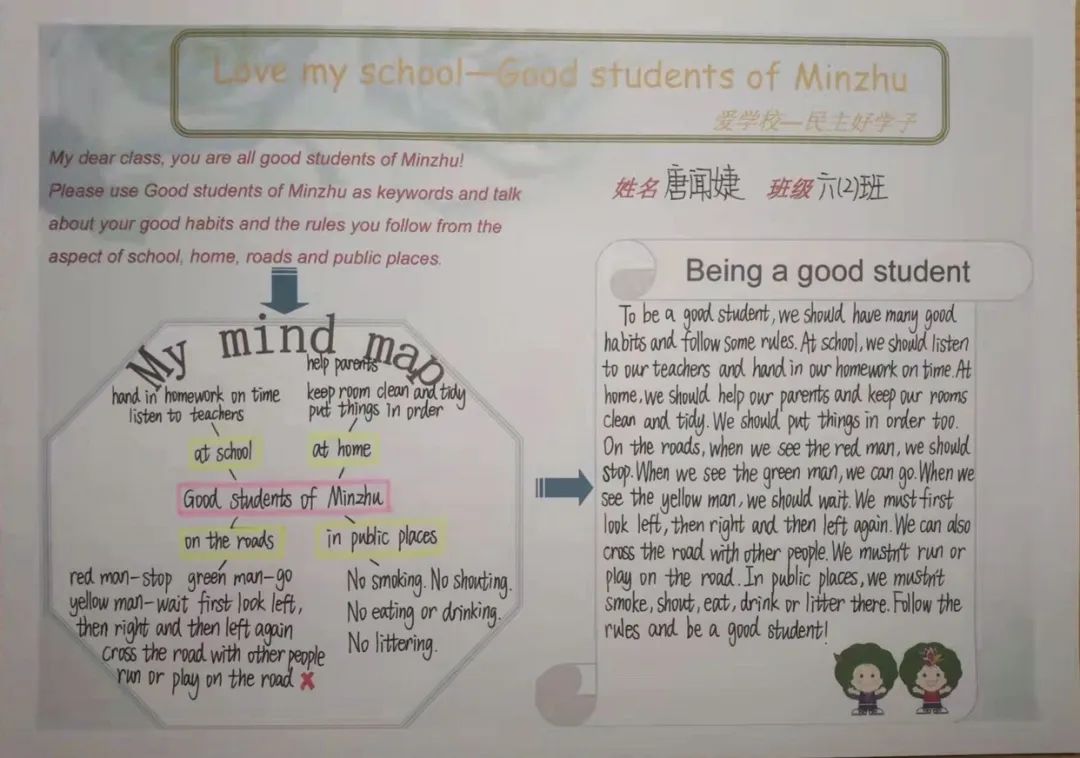 Love my school—Good students of Minzhu
爱学校—民主好学子
My dear class, you are all good students of Minzhu!
Please use Good students of Minzhu as keywords and talk
about your good habits and the rules you follow from the
aspect of school, home, roads and public places.
姓名 唐闻婕 班级 六(2)班
My mind map
help parents
hand in homework on time
listen to teachers
keep room clean and tidy
put things in order
at school
at home
Good students of Minzhu
on the roads
in public places
red man-stop green man-go
yellow man-wait first look left,
then right and then left again
cross the road with other people
run or play on the road ✗
No smoking. No shouting.
No eating or drinking.
No littering.
Being a good student
To be a good student, we should have many good
habits and follow some rules. At school, we should listen
to our teachers and hand in our homework on time. At
home, we should help our parents and keep our rooms
clean and tidy. We should put things in order too.
On the roads, when we see the red man, we should
stop. When we see the green man, we can go. When we
see the yellow man, we should wait. We must first
look left, then right and then left again. We can also
cross the road with other people. We mustn't run or
play on the road. In public places, we mustn't
smoke, shout, eat, drink or litter there. Follow the
rules and be a good student!